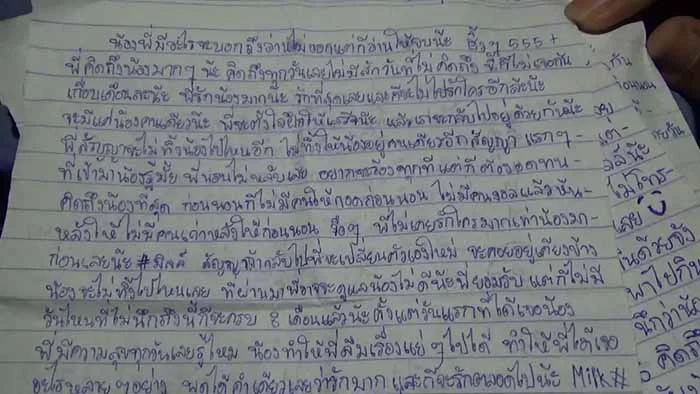 น้องพี่มีอะไรจะบอกถึงอ่านไม่ออกแต่ก็อ่านให้จบน๊ะ ฮึๆๆ 555+
พี่คิดถึงน้องมากๆ น๊ะ คิดถึงทุกวันเลยไม่มีสักวันที่ไม่คิดถึง นี่ก็ไม่เจอกัน
เกือบเดือนแล้วน๊ะ พี่รักน้องมากน๊ะ รักที่สุดเลยและคงจะไม่ไปรักใครอีกแล้วน๊ะ
จะมีแค่น้องคนเดียวน๊ะ พี่จะตั้งใจ ให้เสร็จน๊ะ แล้วเราจะกลับไปอยู่ด้วยกันน๊ะ
พี่สัญญาจะไม่ทิ้งน้องไปไหนอีก ไม่ทิ้งให้น้องอยู่คนเดียวอีก สัญญา แรกๆ-
ที่เข้ามาน้องรู้มั้ย พี่นอนไม่หลับเลย อยากจะร้องทุกทีแต่ก็ต้องอดทน-
คิดถึงน้องที่สุด ก่อนนอนก็ไม่มีคนให้กอดก่อนนอน ไม่มีคนงอนแล้วหัน-
หลังให้ ไม่มีคนเกาหลังให้ก่อนนอน จริงๆ พี่ไม่เคยรักใครมากเท่าน้องมา-
ก่อนเลยน๊ะ #มิลค์ สัญญาว่ากลับไปพี่จะเปลี่ยนตัวเองใหม่ จะคอยอยู่เคียงข้าง
น้องจะไม่ทิ้งไปไหนเลย ที่ผ่านมาพี่อาจจะดูแลน้องไม่ดีน๊ะพี่ยอมรับ แต่ก็ไม่มี
วันไหนที่ไม่นึกถึงนี่ก็จะครบ 8 เดือนแล้วน๊ะตั้งแต่วันแรกที่ได้เจอน้อง
พี่มีความสุขทุกวันเลยรู้ไหม น้องทำให้พี่ลืมเรื่องแย่ๆไปได้ ทำให้พี่ได้เจอ
อะไรหลายๆอย่าง พูดได้คำเดียวเลยว่ารักมาก และก็จะรักตลอดไปน๊ะ Milk#